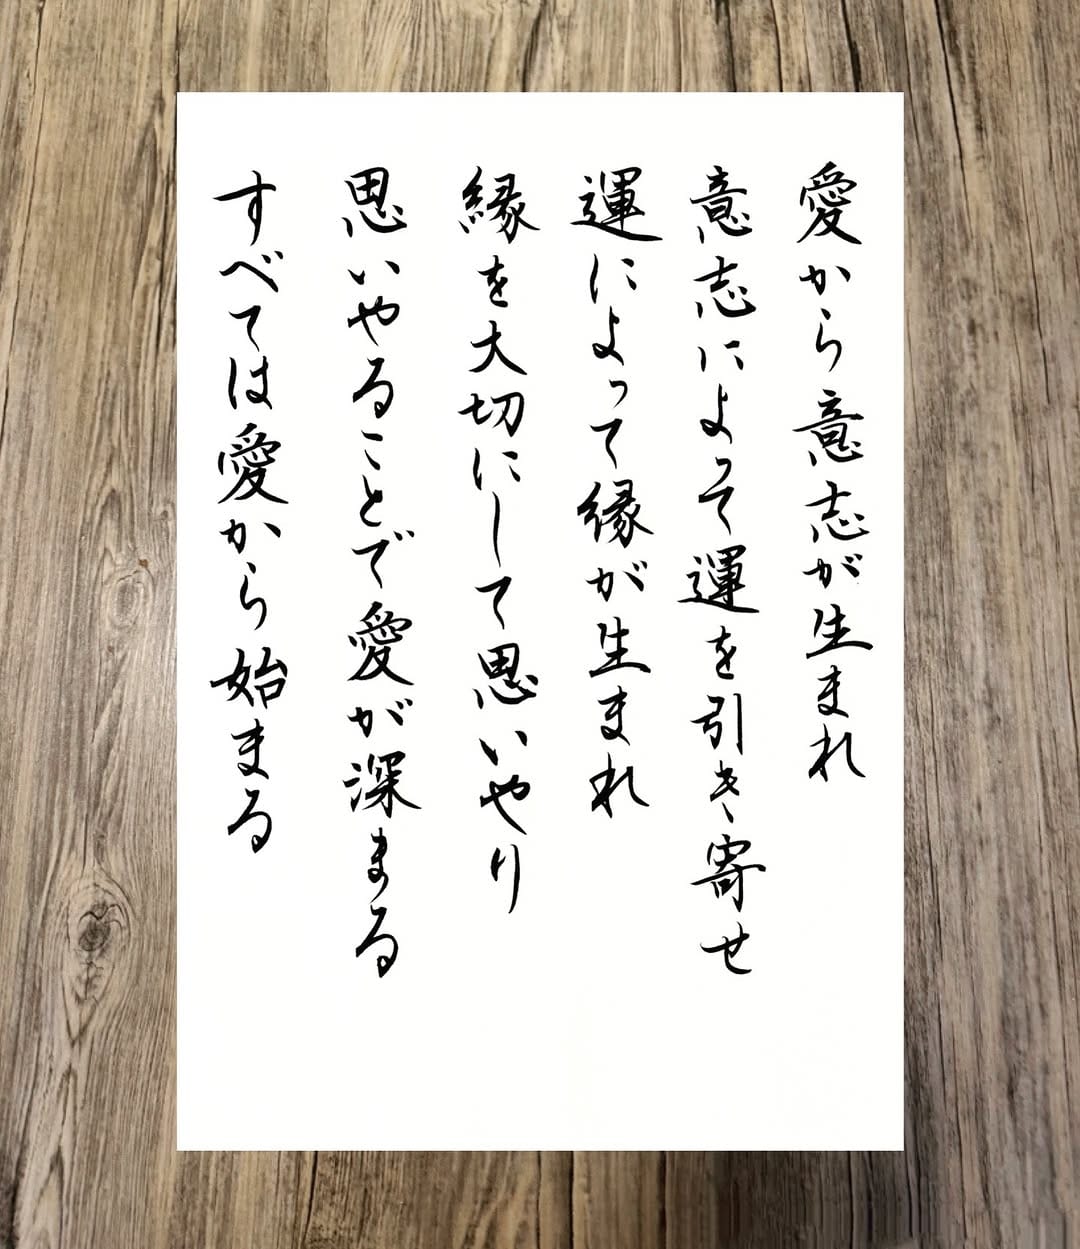 愛から意志が生まれ
意志によって運を引き寄せ
運によって縁が生まれ
縁を大切にして思いやり
思いやることで愛が深まる
すべては愛から始まる